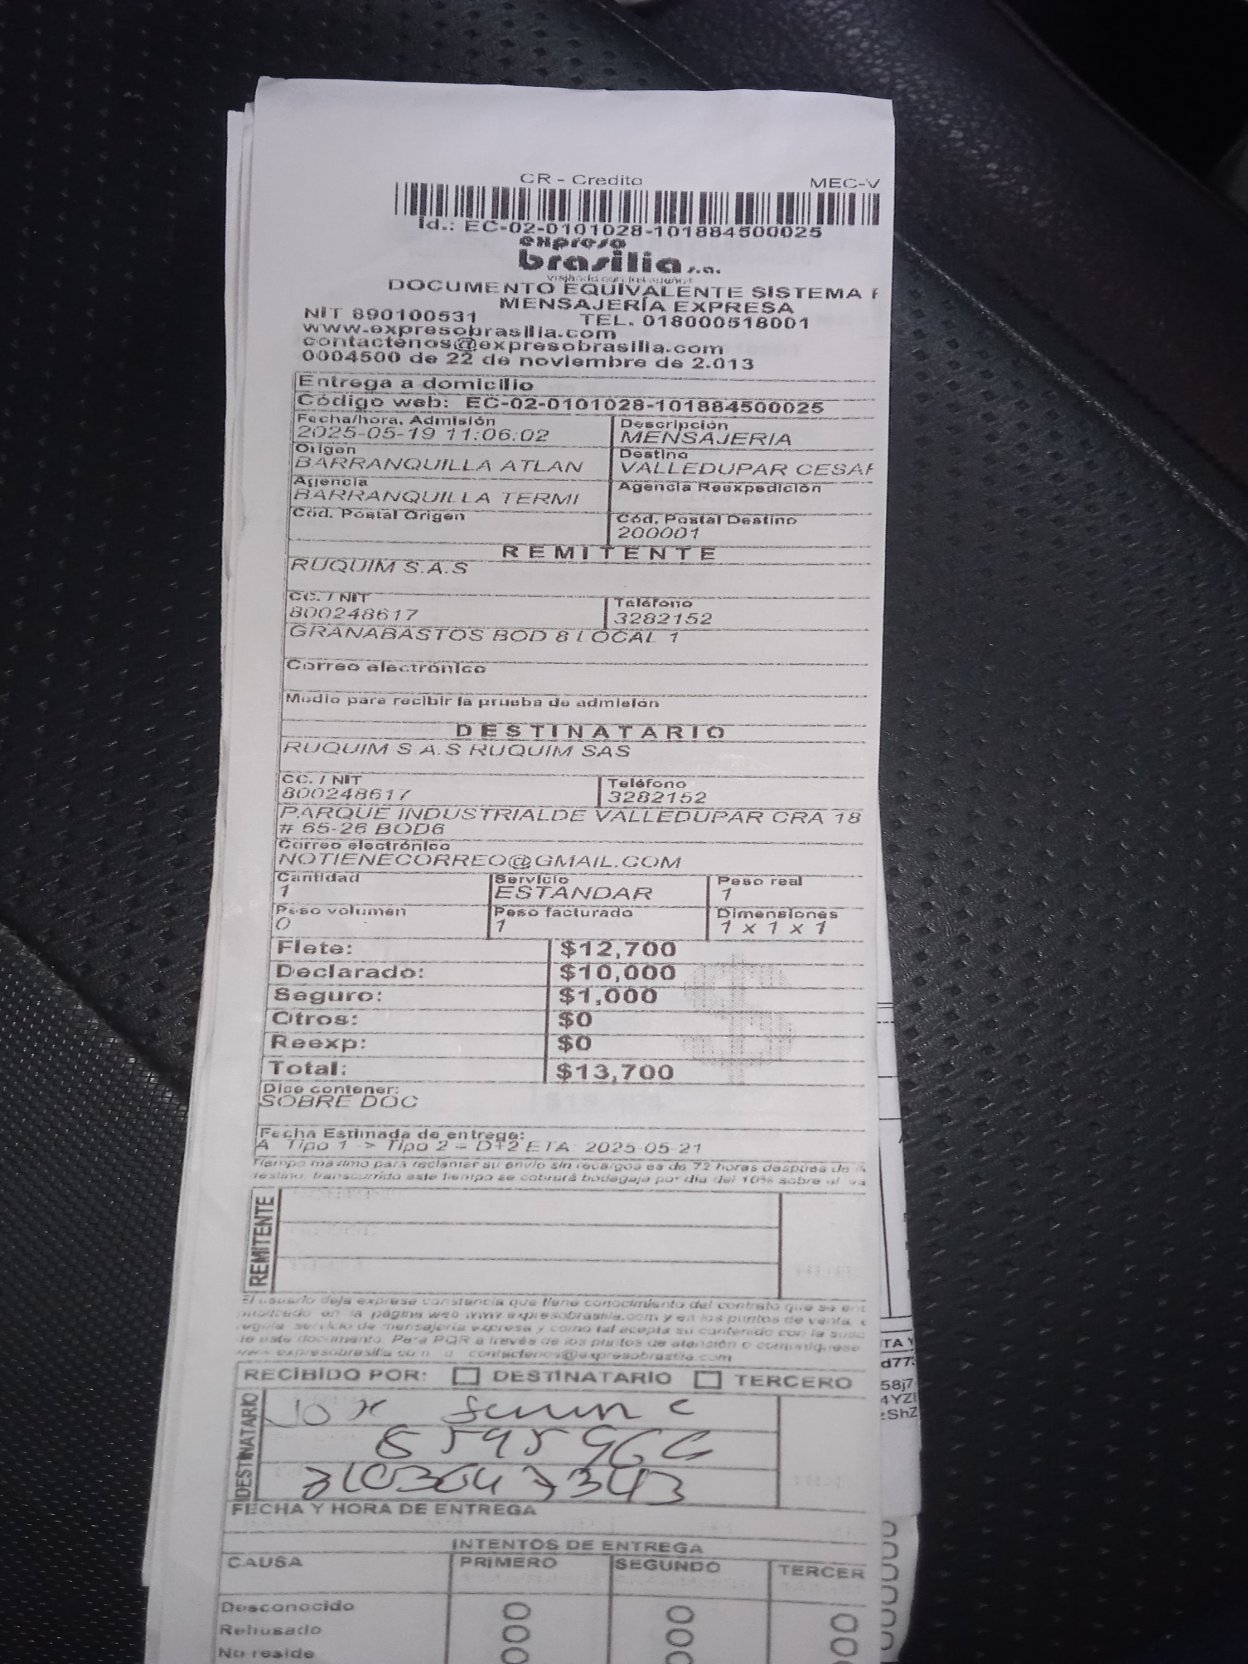 CR - Credito MEC-V
Id.: EC-02-0101028-101884500025
expreso
brasilia s.a.
DOCUMENTO EQUIVALENTE SISTEMA P
MENSAJERÍA EXPRESA
NIT 890100531 TEL. 018000518001
www.expresobrasilia.com
contactenos@expresobrasilia.com
0004500 de 22 de noviembre de 2.013
Entrega a domicilio
Código web: EC-02-0101028-101884500025
Fecha/hora, Admisión Descripción
2025-05-19 11:06:02 MENSAJERIA
Origen Destino
BARRANQUILLA ATLAN VALLEDUPAR CESAR
Agencia Agencia Reexpedición
BARRANQUILLA TERMI
Cód. Postal Origen Cód. Postal Destino
200001
REMITENTE
RUQUIM S.A.S
CC. / NIT Teléfono
800248617 3282152
GRANABASTOS BOD 8 LOCAL 1
Correo electrónico
Medio para recibir la prueba de admisión
DESTINATARIO
RUQUIM S.A.S RUQUIM SAS
CC. / NIT Teléfono
800248617 3282152
PARQUE INDUSTRIALDE VALLEDUPAR CRA 18
# 65-26 BOD6
Correo electrónico
NOTIENECORREO@GMAIL.COM
Cantidad Servicio Peso real
1 ESTANDAR 1
Peso volumen Peso facturado Dimensiones
0 1 1 x 1 x 1
Flete: $12,700
Declarado: $10,000
Seguro: $1,000
Otros: $0
Reexp: $0
Total: $13,700
Dice contener:
SOBRE DOC
Fecha Estimada de entrega:
A Tipo 1 -> Tipo 2 - D+2 ETA: 2025-05-21
Tiempo máximo para reclamar su envío sin recargos es de 72 horas después de
destino, transcurrido este tiempo se cobrará bodegaje por día del 10% sobre el va
REMITENTE
El usuario deja expresa constancia que tiene conocimiento del contrato que se
en la página web www.expresobrasilia.com y en los puntos de venta,
servicio de mensajería expresa y como tal acepta su contenido con la
de este documento. Para PQR a través de los puntos de atención o comuníquese
contactenos@expresobrasilia.com
RECIBIDO POR: DESTINATARIO TERCERO
DESTINATARIO
3103647343
FECHA Y HORA DE ENTREGA
INTENTOS DE ENTREGA
CAUSA PRIMERO SEGUNDO TERCER
Desconocido
Rehusado
No reside
TA Y
d773
58j7
4YZI
ShZ